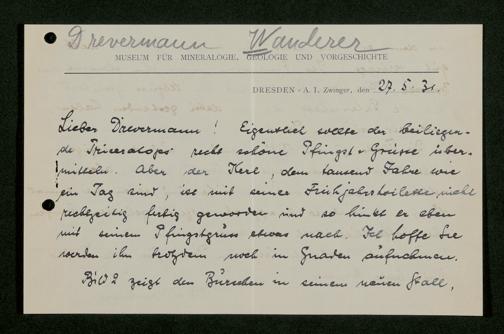 Drevermann Wanderer
MUSEUM FÜR MINERALOGIE, GEOLOGIE UND VORGESCHICHTE
DRESDEN - A. 1, Zwinger, den 27.5.31.
Lieber Drevermann! Eigentlich sollte der beiliegen-
de Triceratops recht schöne Pfingst-Grüsse über-
mitteln. Aber der Kerl, dem tausend Jahre wie
ein Tag sind, ist mit seiner Frühjahrstoilette nicht
rechtzeitig fertig geworden und so hinkt er eben
mit seinem Pfingstgruss etwas nach. Ich hoffe Sie
werden ihn trotzdem noch in Gnaden aufnehmen.
Bild 2 zeigt den Burschen in seinem neuen Stall,